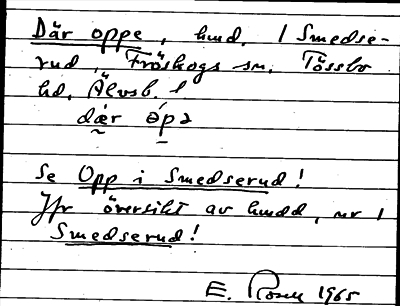 Där oppe, hmd. 1 Smedse-
rud, Fröskogs sn. Tössbo
hd. Älvsb. l
dǽr òpə
Se Opp i Smedserud!
Jfr översikt av hmdd, nr 1
Smedserud!
E. Rosell 1965